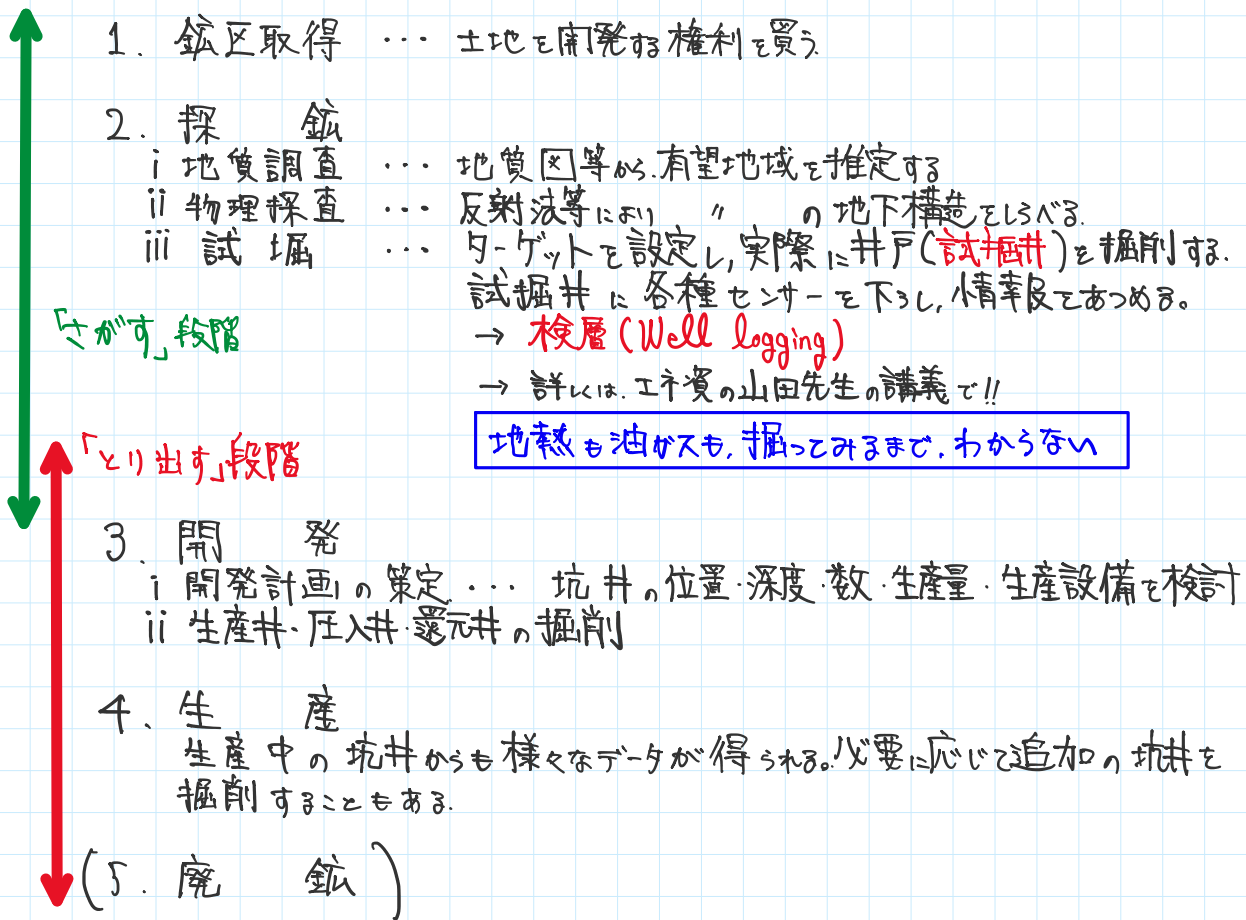 1. 鉱区取得 … 土地を開発する権利を買う.
2. 探 鉱
i 地質調査 … 地質図等から、有望地域を推定する
ii 物理探査 … 反射法等により 〃 の地下構造をしらべる.
iii 試掘 … ターゲットを設定し, 実際に井戸(試掘井)を掘削する.
試掘井に各種センサーを下ろし, 情報をあつめる。
「さがす」段階
→ 検層 (Well logging)
→ 詳しくは、エネ資の山田先生の講義で!!
地熱も油ガスも, 掘ってみるまで、わからない
「とり出す」段階
3. 開 発
i 開発計画の策定 … 坑井の位置・深度・数・生産量・生産設備を検討
ii 生産井・圧入井・還元井の掘削
4. 生 産
生産中の坑井からも様々なデータが得られる。必要に応じて追加の坑井を
掘削することもある.
(5. 廃 鉱)